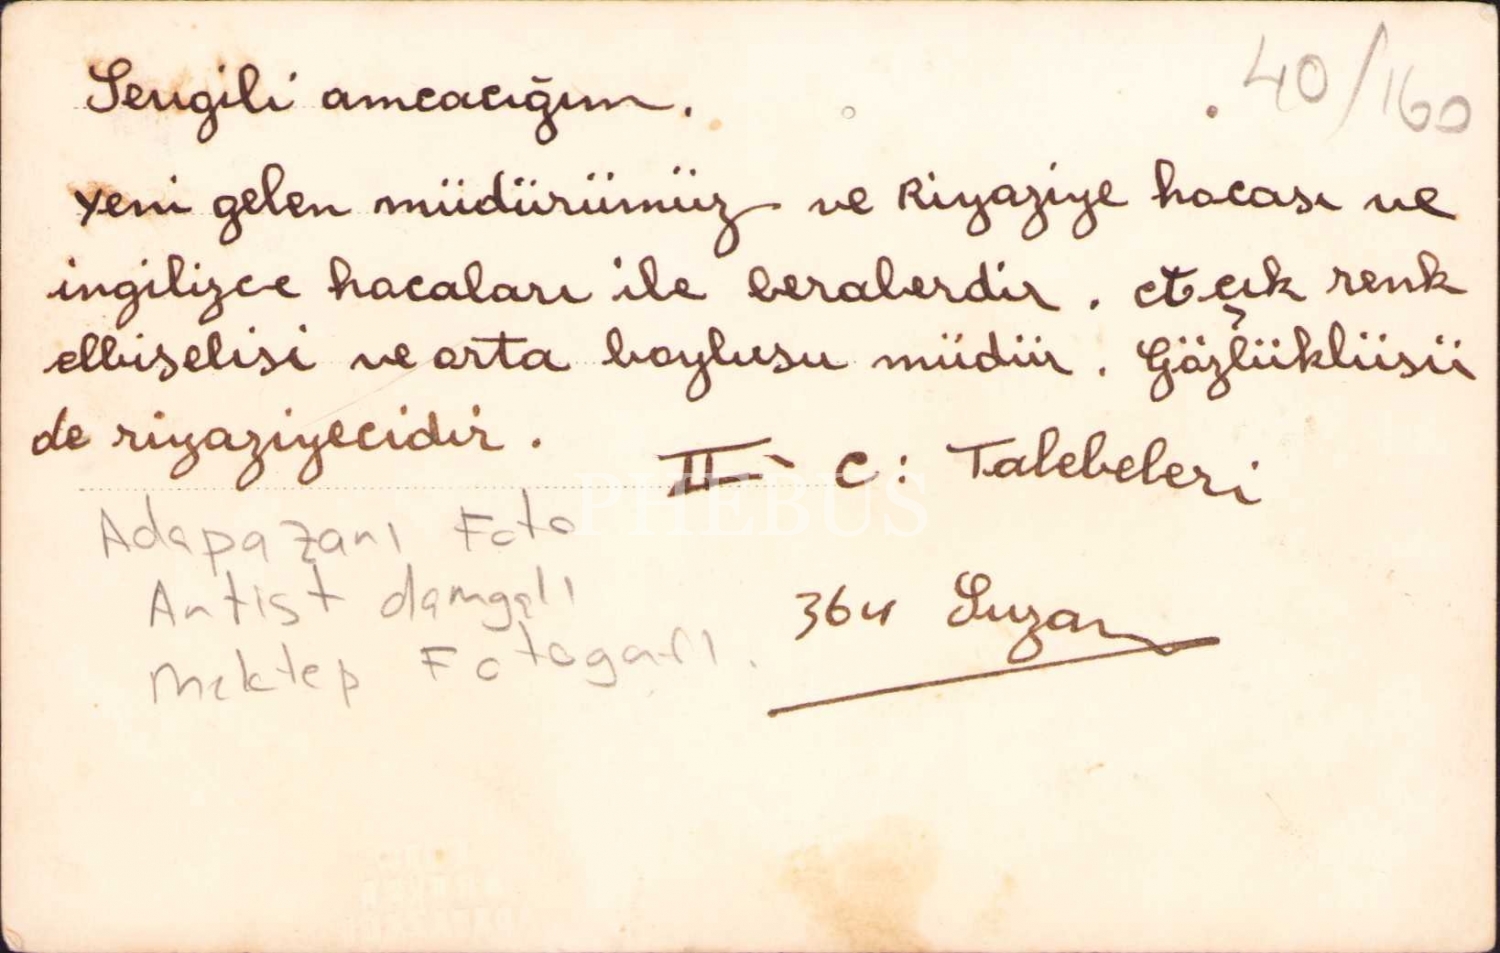 40/160
Sevgili amcacığım.
Yeni gelen müdürümüz ve Riyaziye hocası ve
ingilizce hocaları ile beraberdir. Açık renk
elbiselisi ve orta boylusu müdür. Gözlüklüsü
de riyaziyecidir.
II - C: Talebeleri
PHEBUS
Adapazarı Foto
Artist damgalı
Mektep Fotogarfı.
364 Suzan